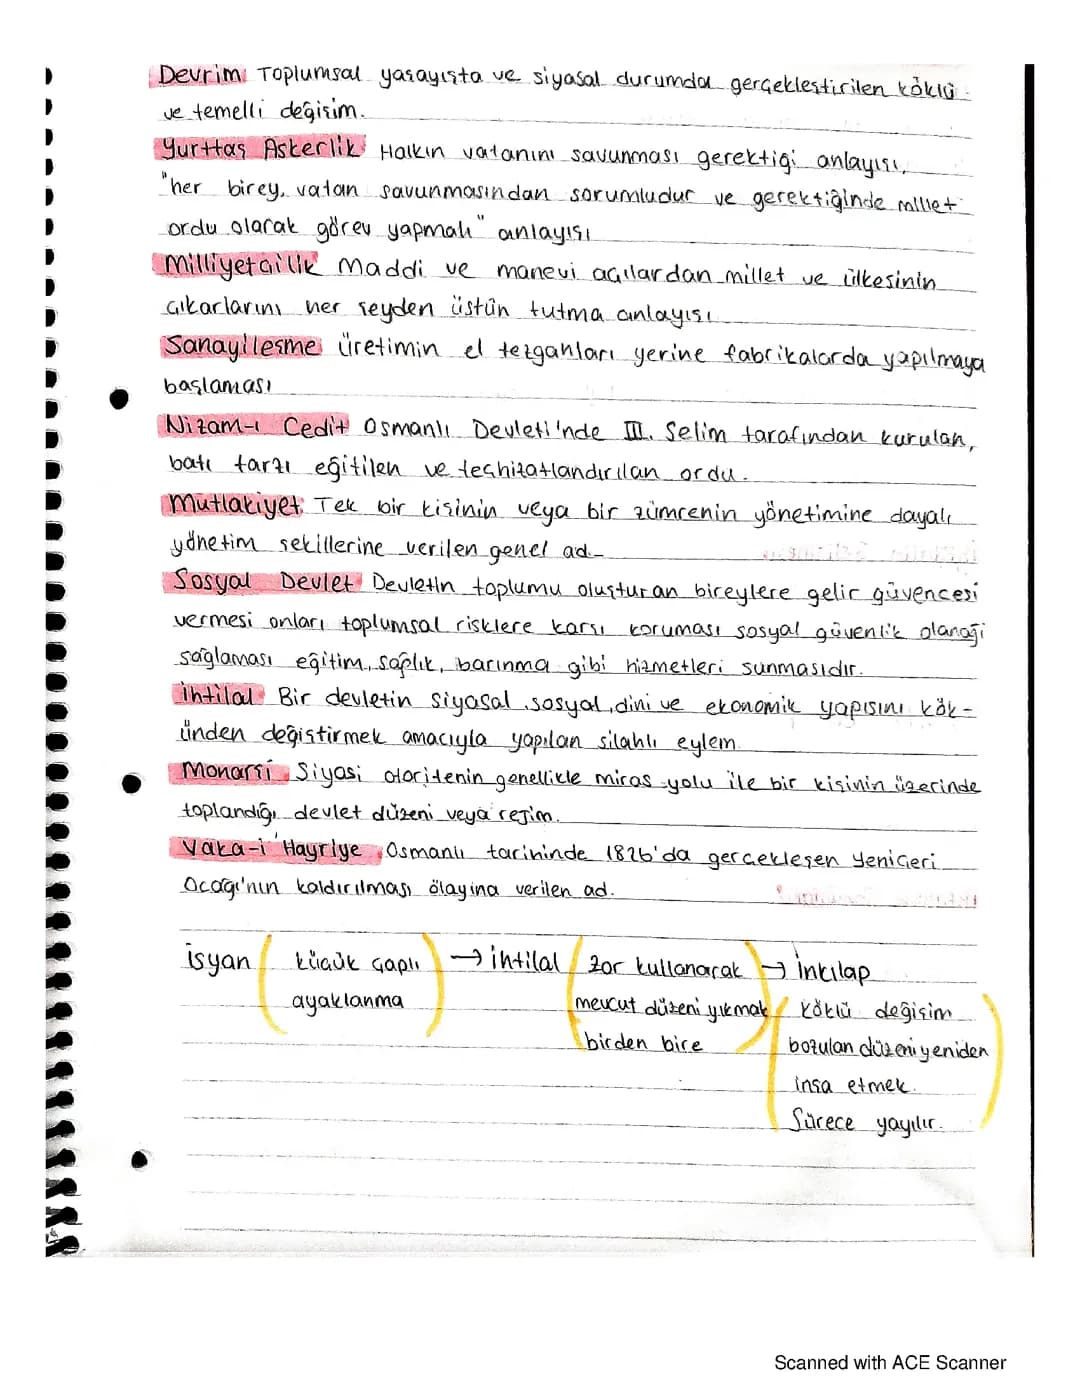 Devrim: Toplumsal yaşayışta ve siyasal durumda gerçekleştirilen köklü
ve temelli değişim.
Yurttaş Askerlik Halkın vatanını savunması gerektiği anlayışı,
"her birey, vatan savunmasından sorumludur ve gerektiğinde millet
ordu olarak görev yapmalı" anlayışı
Milliyetçilik Maddi ve manevi açılardan millet ve ülkesinin
çıkarlarını her şeyden üstün tutma anlayışı
Sanayileşme üretimin el tezgahları yerine fabrikalarda yapılmaya
başlaması
Nizam-ı Cedit Osmanlı Devleti'nde III. Selim tarafından kurulan,
batı tarzı eğitilen ve teçhizatlandırılan ordu.
Mutlakiyet: Tek bir kişinin veya bir zümrenin yönetimine dayalı
yönetim şekillerine verilen genel ad.
Sosyal Devlet Devletin toplumu oluşturan bireylere gelir güvencesi
vermesi onları toplumsal risklere karşı koruması sosyal güvenlik olanağı
sağlaması eğitim, sağlık, barınma gibi hizmetleri sunmasıdır.
İhtilal Bir devletin siyasal, sosyal, dini ve ekonomik yapısını kök-
ünden değiştirmek amacıyla yapılan silahlı eylem.
Monarşi Siyasi otoritenin genellikle miras yolu ile bir kişinin üzerinde
toplandığı devlet düzeni veya rejim.
Vaka-i Hayriye Osmanlı tarihinde 1826'da gerçekleşen Yeniçeri
Ocağı'nın kaldırılması olayına verilen ad.
isyan ( küçük çaplı → ihtilal ( zor kullanarak → inkılap
ayaklanma ) mevcut düzeni yıkmak ( köklü değişim
birden bire ) bozulan düzeni yeniden
inşa etmek.
Sürece yayılır. )
Scanned with ACE Scanner